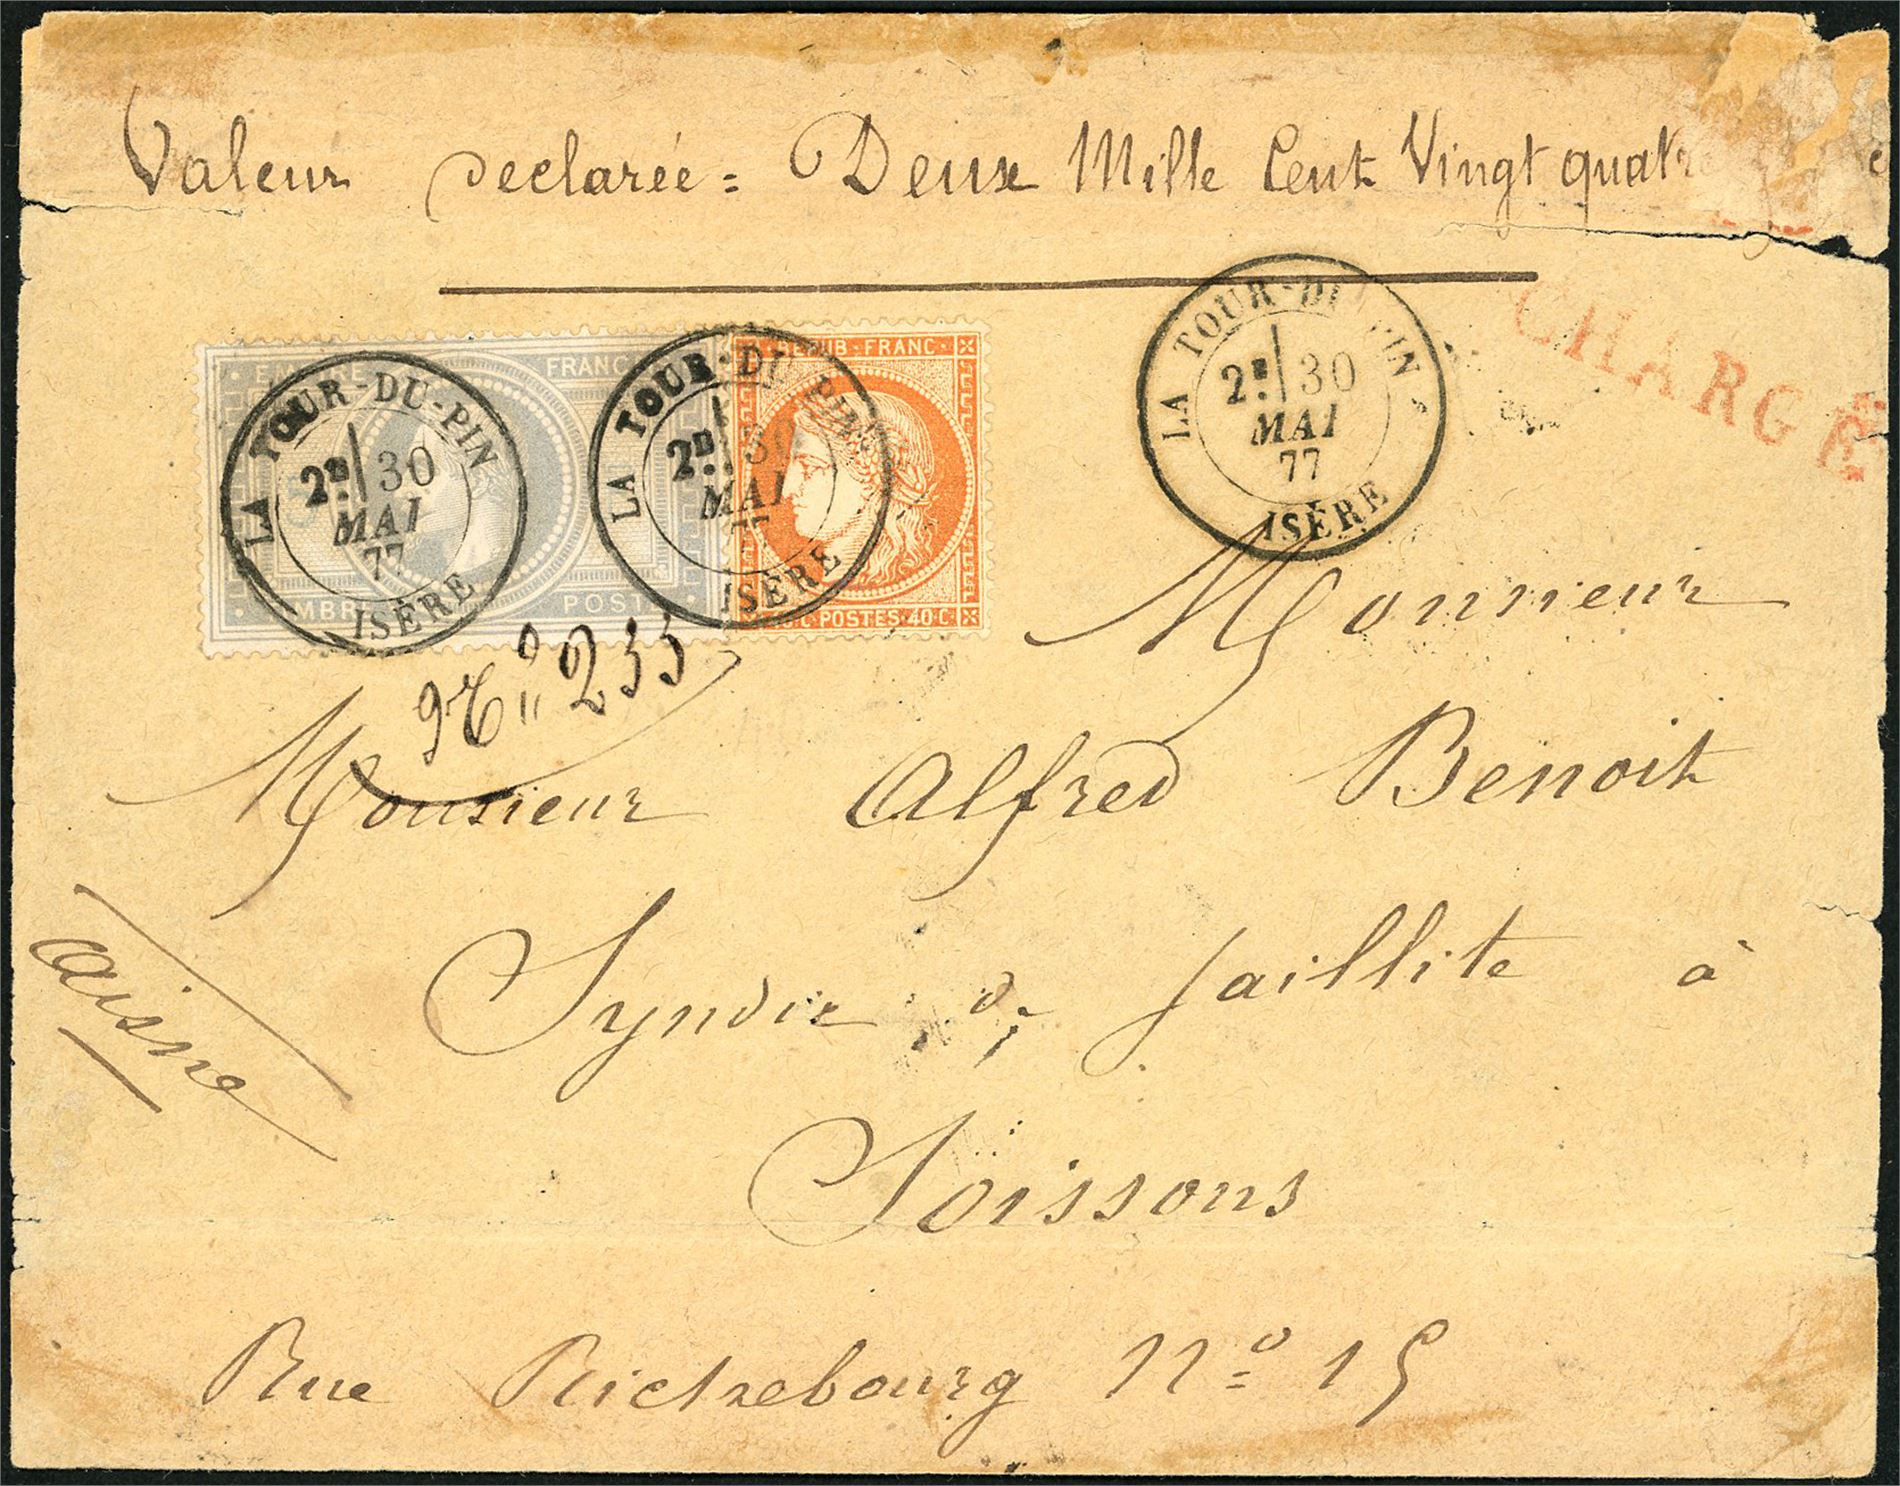 Valeur Declarée = Deux Mille Cent Vingt quatre
CHARGÉ
LA TOUR-DU-PIN
2E 30
MAI
77
ISÈRE
LA TOUR-DU-PIN
2E 30
MAI
77
ISÈRE
LA TOUR-DU-PIN
2E 30
MAI
77
ISÈRE
EMPIRE FRANC
TIMBRE POSTE
REPUB·FRANC·
POSTES·40·C·
No 255
Monsieur
Monsieur Alfred Benoit
Syndic de faillite à
Soissons
aisne
Rue Richebourg No 15